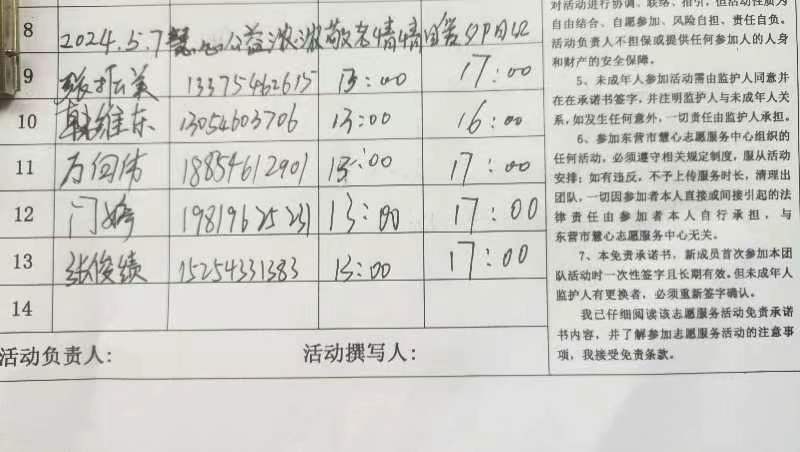 8 2024.5.7慧心公益浓浓敬老情情
9 张振美 13375462615 13:00 17:00
10 韩维东 13054603706 13:00 16:00
11 万向伟 18854612901 13:00 17:00
12 门婷 19819625231 13:00 17:00
13 张俊绩 15254331383 13:00 17:00
14
活动负责人: 活动撰写人:
对活动进行协调、联络、指引,但活动性质为
自由结合、自愿参加、风险自担、责任自负。
活动负责人不担保或提供任何参加人的人身
和财产的安全保障。
5、未成年人参加活动需由监护人同意并
在在承诺书签字,并注明监护人与未成年人关
系,如发生任何意外,一切责任由监护人承担。
6、参加东营市慧心志愿服务中心组织的
任何活动,必须遵守相关规定制度,服从活动
安排;如有违反,不予上传服务时长,清理出
团队,一切因参加者本人直接或间接引起的法
律责任由参加者本人自行承担,与
东营市慧心志愿服务中心无关。
7、本免责承诺书,新成员首次参加本团
队活动时一次性签字且长期有效。但未成年人
监护人有更换者,必须重新签字确认。
我已仔细阅读该志愿服务活动免责承诺
书内容,并了解参加志愿服务活动的注意事
项,我接受免责条款。